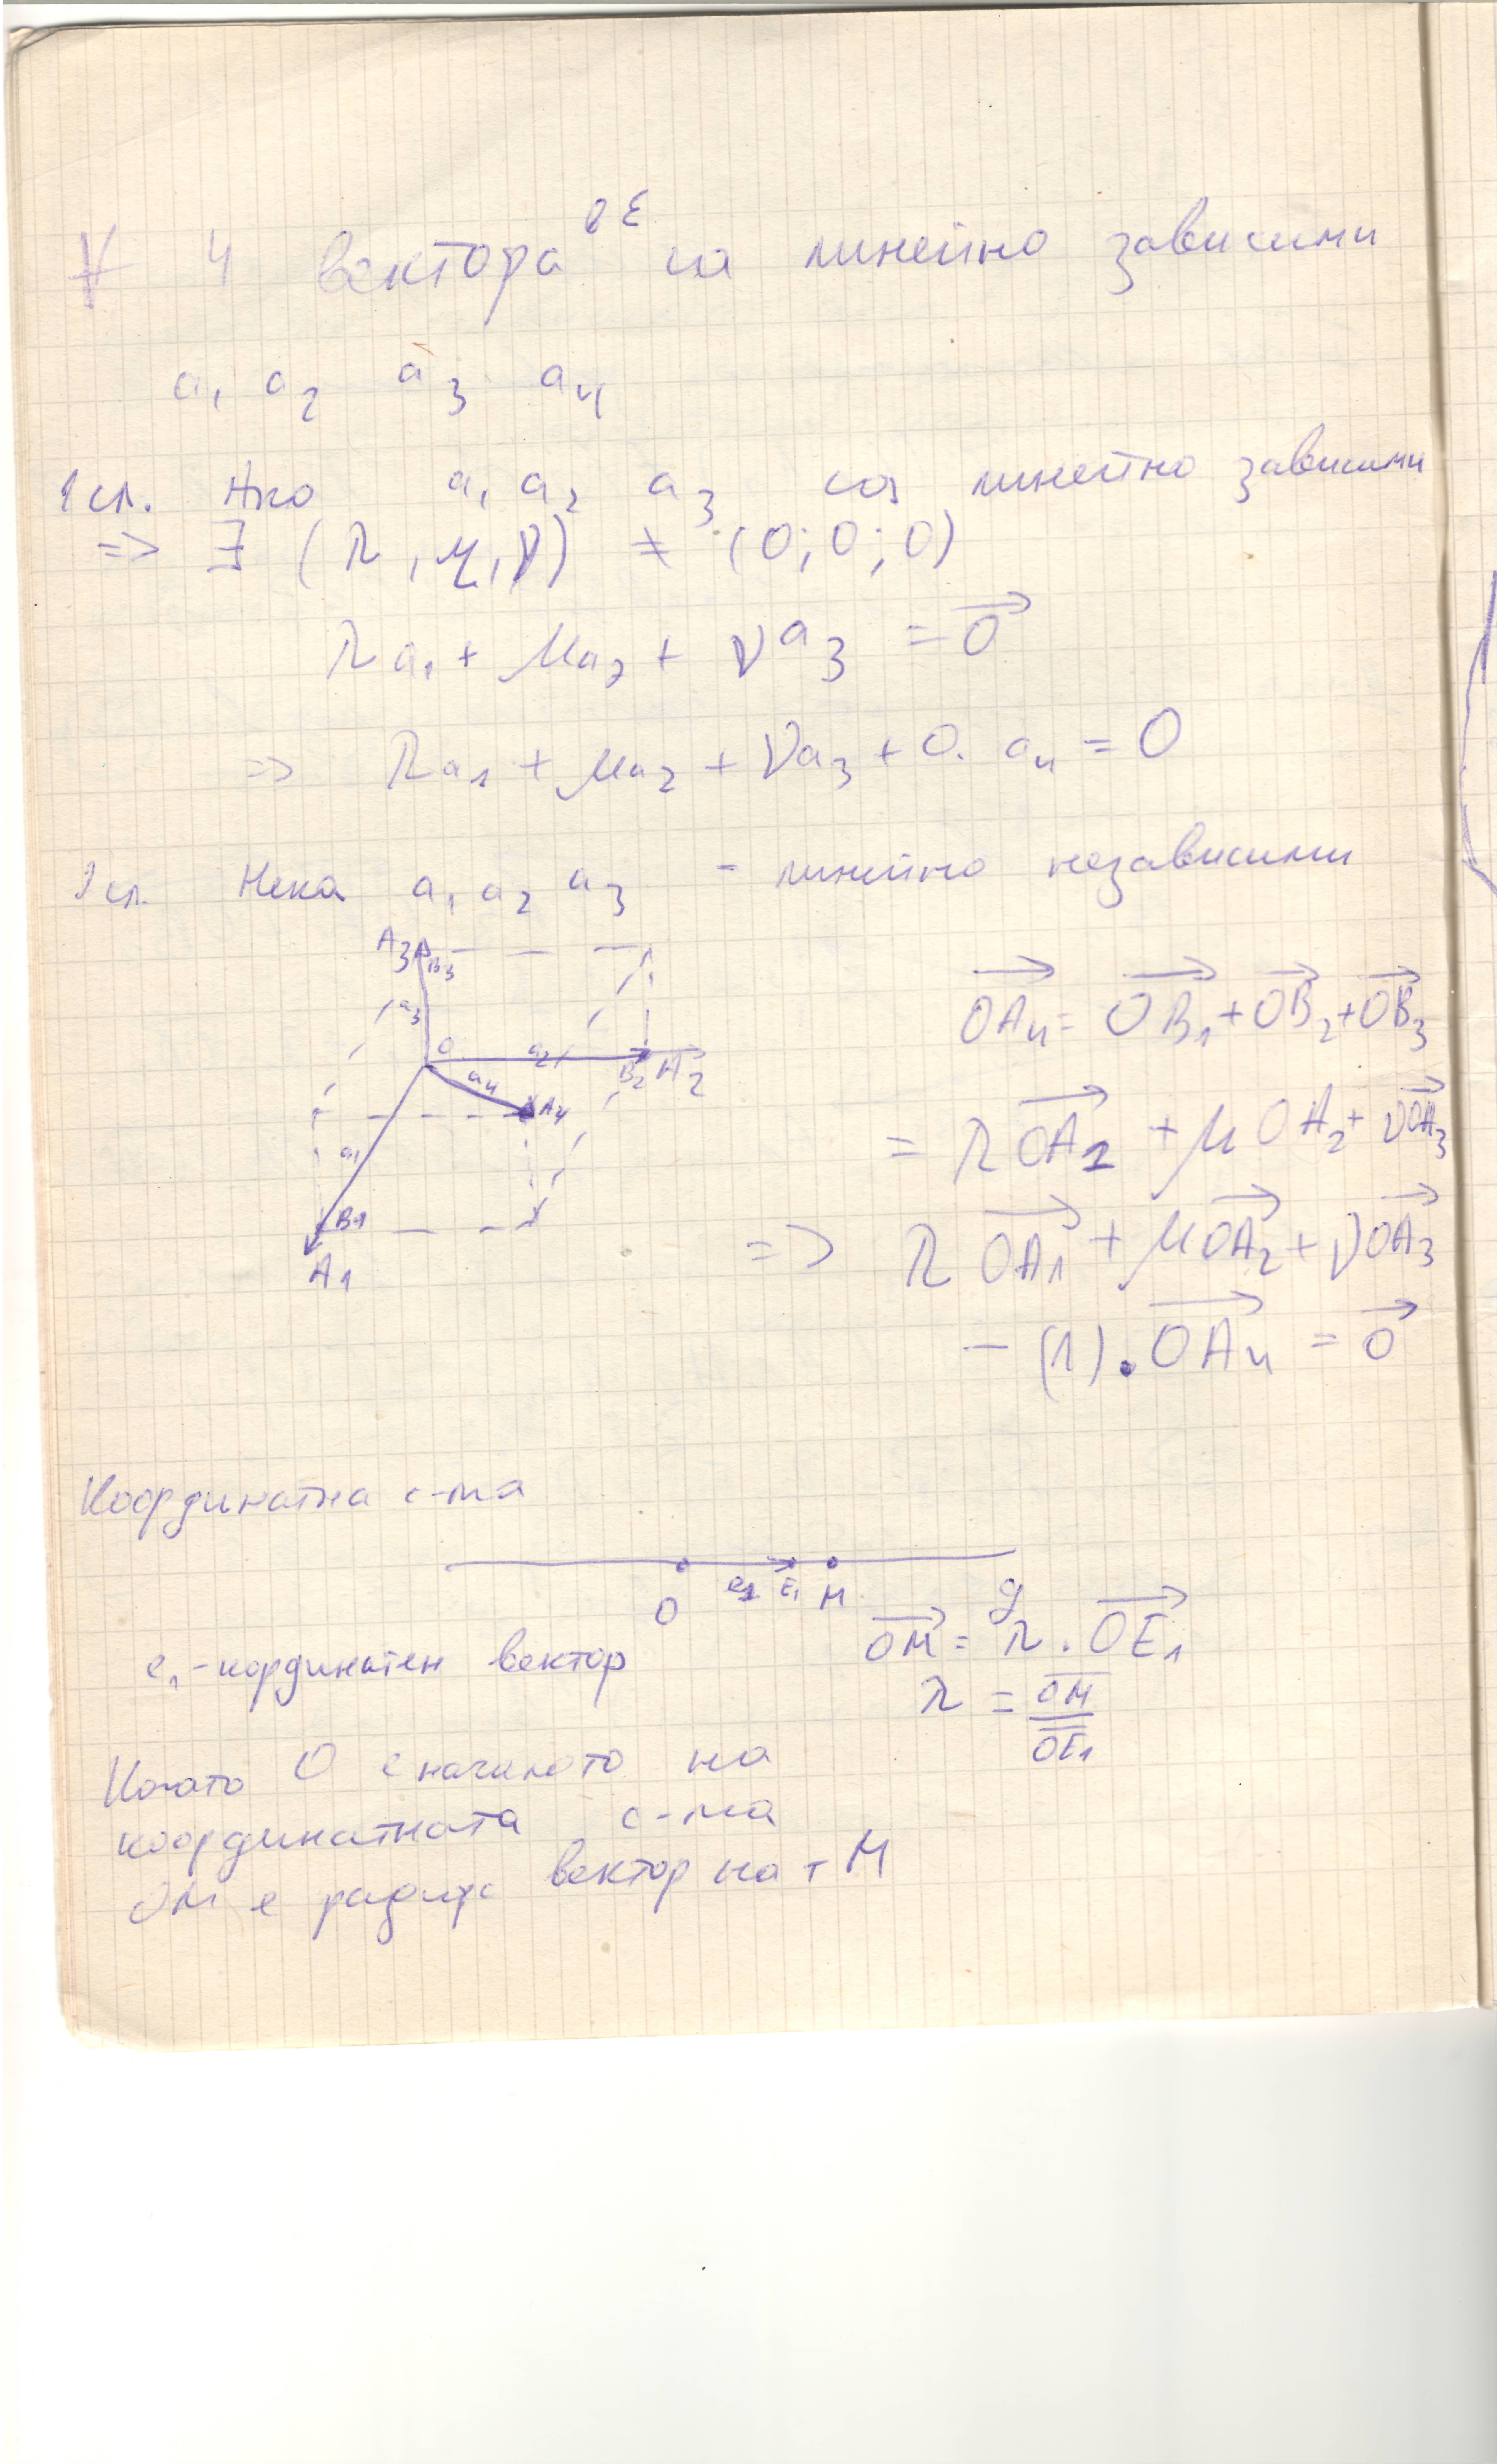 ∀ 4 вектора в Е са линейно зависими
a₁ a₂ a₃ a₄
1сл. Ако a₁ a₂ a₃ са линейно зависими
=> ∃ (λ, μ, ν) ≠ (0; 0; 0)
λa₁ + μa₂ + νa₃ = →0
=> λa₁ + μa₂ + νa₃ + 0. a₄ = 0
2сл. Нека a₁ a₂ a₃ - линейно независими
A₃ B₃
a₃
O a₂ B₂ A₂
a₄ A₄
a₁
B₁
A₁
→OA₄ = →OB₁ + →OB₂ + →OB₃
= λ→OA₁ + μOA₂ + ν→OA₃
=> λ→OA₁ + μ→OA₂ + ν→OA₃
- (1).→OA₄ = →0
Координатна с-ма
O e₁ E₁ M g
e₁-кординатен вектор
→OM = λ . →OE₁
λ = OM / OE₁
Когато O е началото на
координатната с-ма
OM е радиус вектор на т M